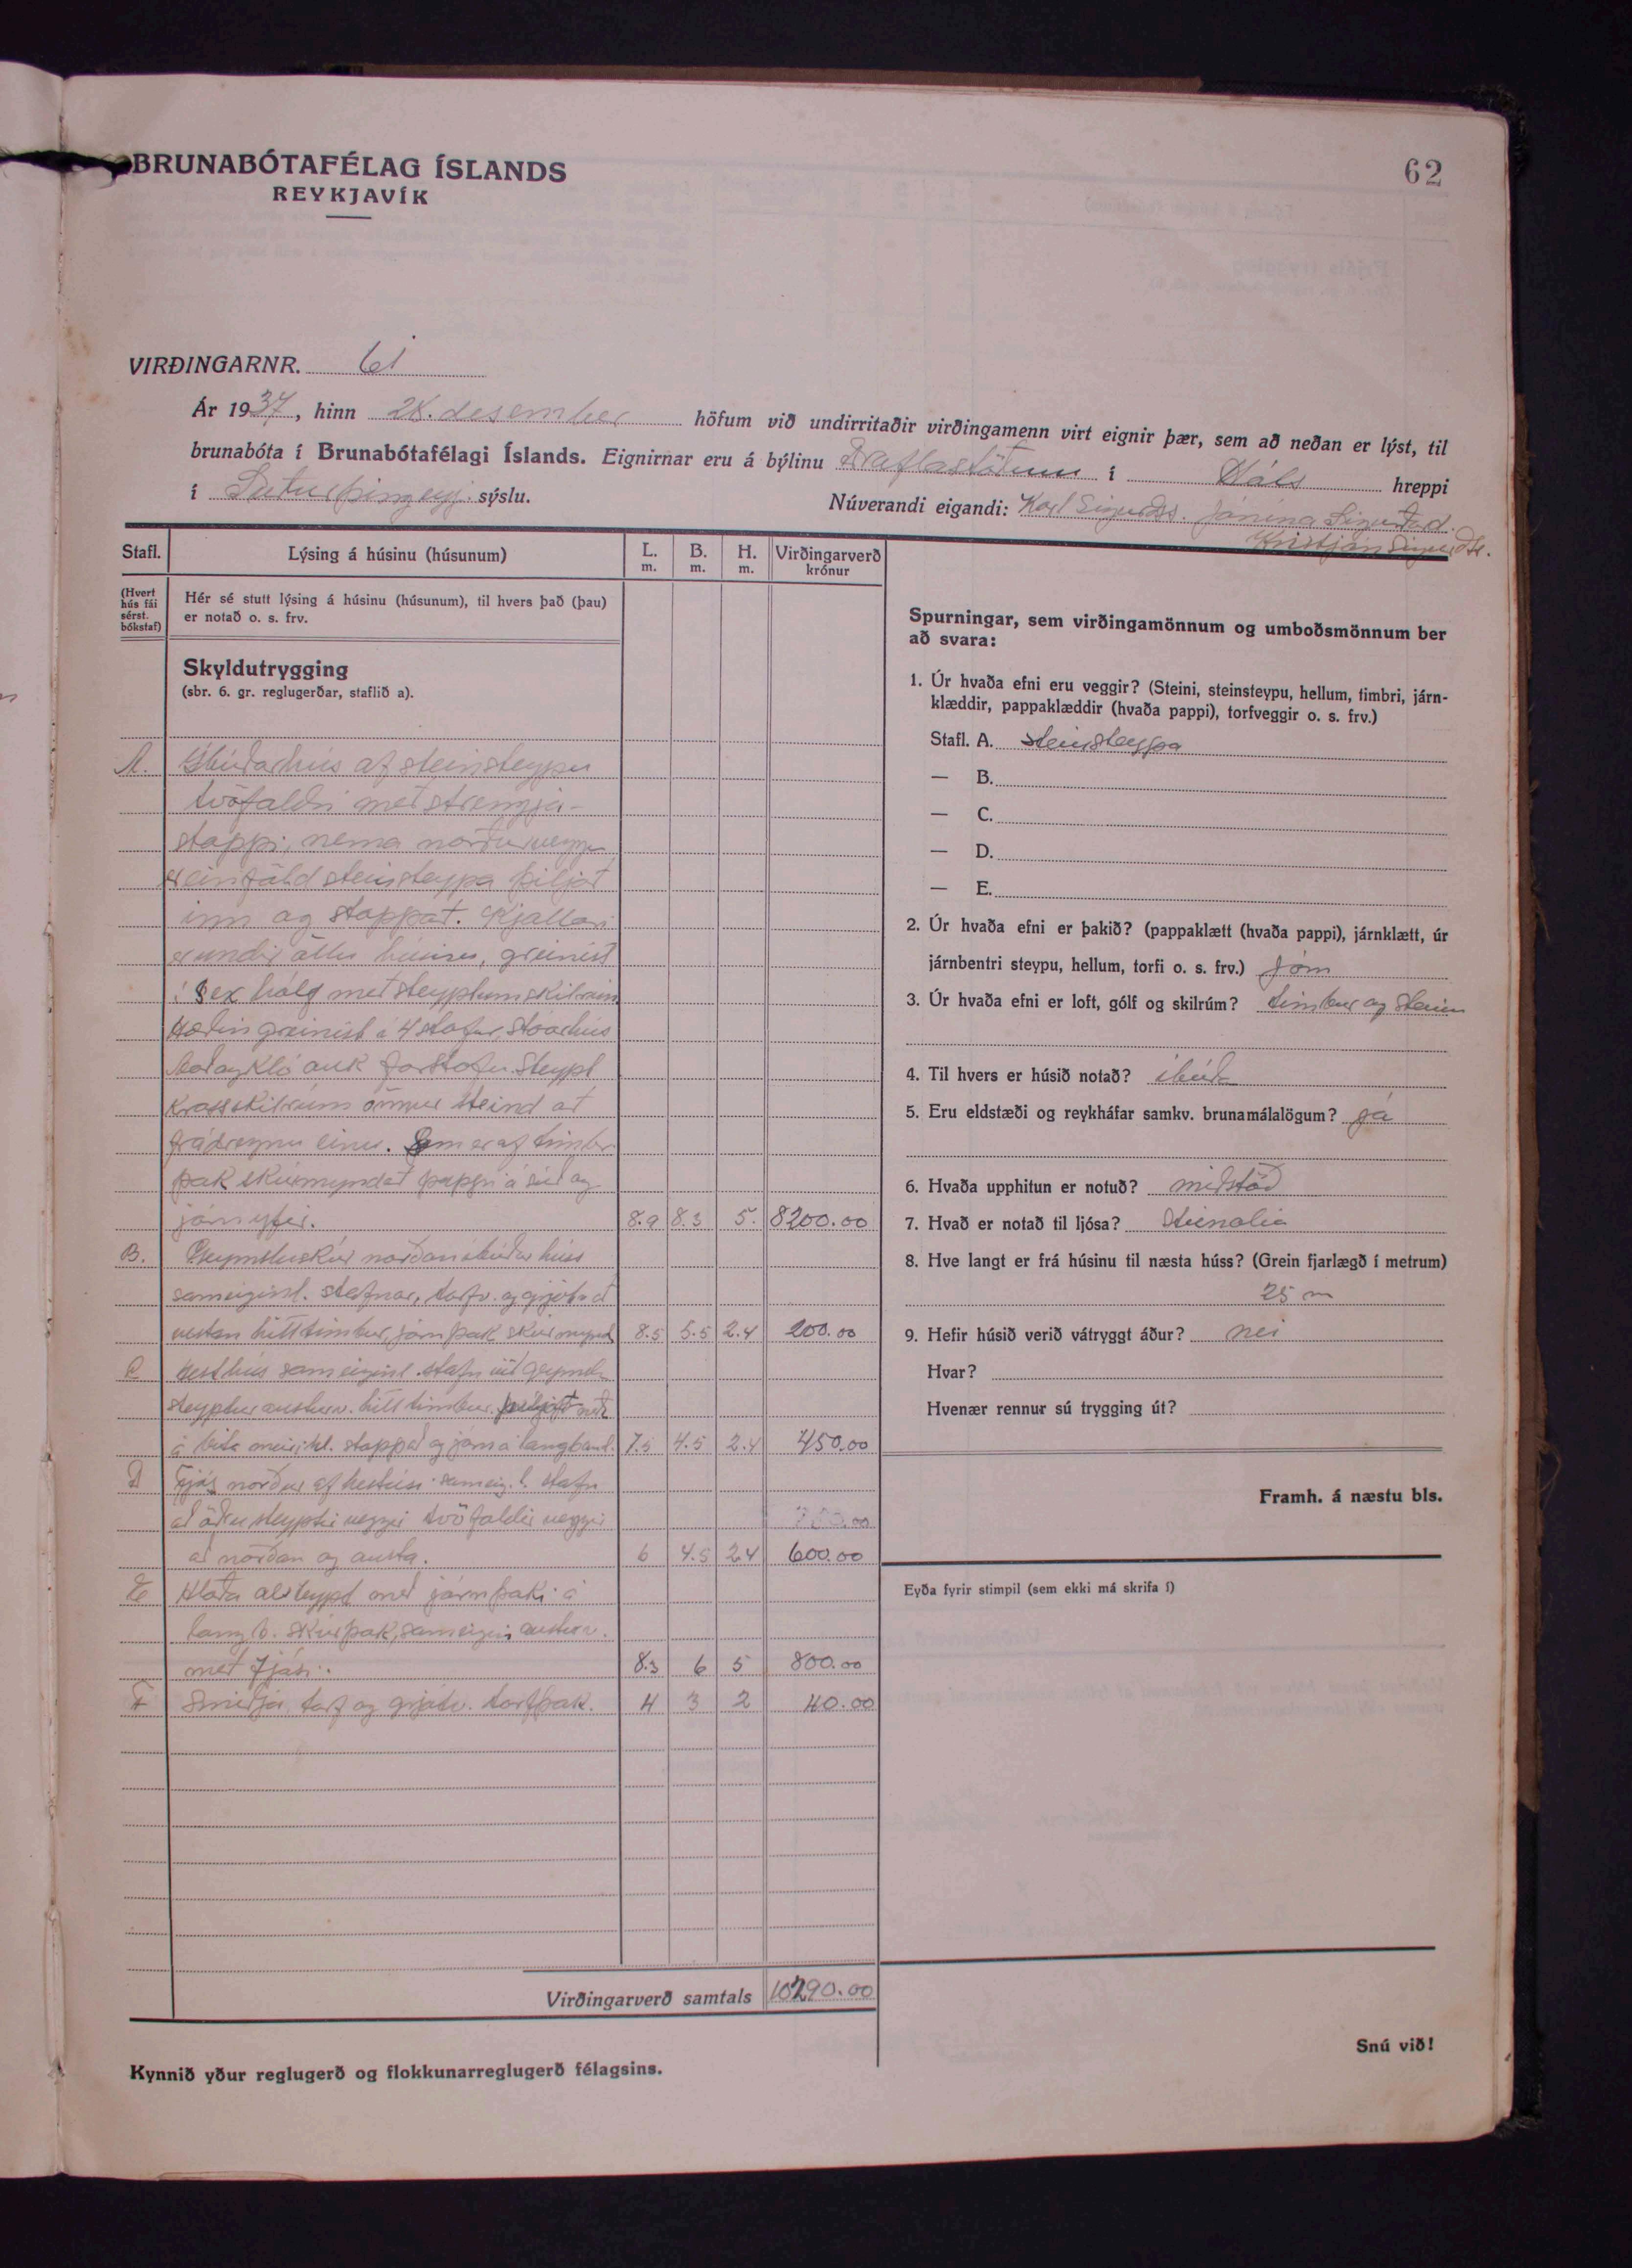 BRUNABÓTAFÉLAG ÍSLANDS
REYKJAVÍK
62
VIRÐINGARNR. 61
Ár 1937, hinn 28. desember höfum við undirritaðir virðingamenn virt eignir þær, sem að neðan er lýst, til
brunabóta í Brunabótafélagi Íslands. Eignirnar eru á býlinu Draflastöðum í Háls hreppi
í Suðurþingeyj. sýslu. Núverandi eigandi: Karl Sigurðss. Jónína Sigurðard.
Kristján Sigurðss.
Stafl.
Lýsing á húsinu (húsunum)
L. m.
B. m.
H. m.
Virðingarverð krónur
(Hvert hús fái sérst. bókstaf)
Hér sé stutt lýsing á húsinu (húsunum), til hvers það (þau)
er notað o. s. frv.
Skyldutrygging
(sbr. 6. gr. reglugerðar, staflið a).
A. Íbúðarhús af steinsteypu
tvöfaldri með strengja-
stoppi, nema norðurveggur
er einföld steinsteypa þiljað
inn og stoppað. Kjallari
er undir öllu húsinu, greinist
í sex hólf með steyptum skilrúm
Hæðin greinist í 4 stofur, stóarhús
bað og kló auk forstofu. Steypt
krossskilrúm önnur steind að
frádregnu einu. Sem er af timbri
þak skúrmyndað pappi á súð og
járn yfir. 8.9 8.3 5. 8200.00
B. Geymsluskúr norðan íbúðarhúss
sameiginl. stafnar, torfv. og grjót að
vestan hitt timbur, járnþak skúrmynd 8.5 5.5 2.4 200.00
C Hesthús sameiginl. stafn við geymslu
steyptur austurv. hitt timbur. með
á bita stoppað og járn á langbönd. 7.5 4.5 2.4 450.00
D Fjós norður af hesthúsi sameig.l. stafn
að öðru steyptir veggir tvöfaldir veggir
að norðan og austa. 6 4.5 2.4 600.00
E Hlaða alsteypt með járnþaki á
langb. skúrþak, sameigin austurv.
með fjósi. 8.3 6 5 800.00
F Smiðja, torf og grjótv. torfþak. 4 3 2 40.00
Virðingarverð samtals 10290.00
Kynnið yður reglugerð og flokkunarreglugerð félagsins.
Spurningar, sem virðingamönnum og umboðsmönnum ber
að svara:
1. Úr hvaða efni eru veggir? (Steini, steinsteypu, hellum, timbri, járn-
klæddir, pappaklæddir (hvaða pappi), torfveggir o. s. frv.)
Stafl. A. steinsteypa
— B.
— C.
— D.
— E.
2. Úr hvaða efni er þakið? (pappaklætt (hvaða pappi), járnklætt, úr
járnbentri steypu, hellum, torfi o. s. frv.) Járn
3. Úr hvaða efni er loft, gólf og skilrúm? timbur og steinn
4. Til hvers er húsið notað? íbúða
5. Eru eldstæði og reykháfar samkv. brunamálalögum? já
6. Hvaða upphitun er notuð? miðstöð
7. Hvað er notað til ljósa? Steinolía
8. Hve langt er frá húsinu til næsta húss? (Grein fjarlægð í metrum)
25 m
9. Hefir húsið verið vátryggt áður? nei
Hvar?
Hvenær rennur sú trygging út?
Framh. á næstu bls.
Eyða fyrir stimpil (sem ekki má skrifa í)
Snú við!